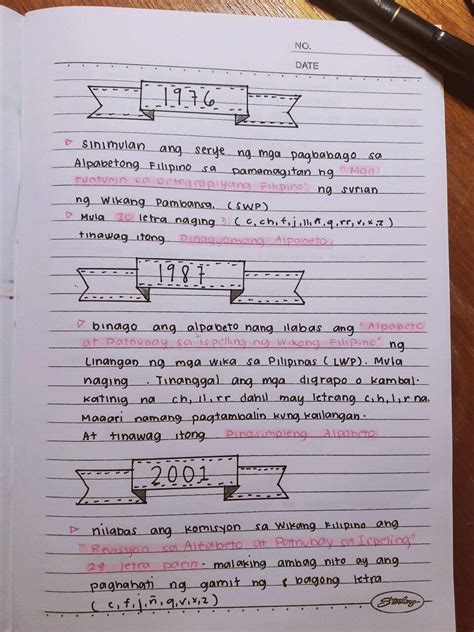 NO.
DATE
1976
sinimulan ang serye ng mga pagbabago sa
Alpabetong Filipino sa pamamagitan ng "Mga
tuntunin sa Ortograpiyang Filipino" ng surian
ng Wikang Pambansa. (SWP)
Mula 20 letra naging 31 (c, ch, f, j, ll, ñ, q, rr, v, x, z)
tinawag itong Pinagyamang Alpabeto.
1987
binago ang alpabeto nang ilabas ang "Alpabeto
at Patnubay sa ispeling ng Wikang Filipino" ng
Linangan ng mga wika sa Pilipinas (LWP). Mula
naging . Tinanggal ang mga digrapo o kambal-
katinig na ch, ll, rr dahil may letrang c, h, l, r na.
Maaari namang pagtambalin kung kailangan.
At tinawag itong Pinasimpleng Alpabeto.
2001
nilabas ang Komisyon sa Wikang Filipino ang
"Revisyon sa Alfabeto at Patnubay sa Ispeling"
28 letra parin - malaking ambag nito ay ang
paghahati ng gamit ng 8 bagong letra
(c, f, j, ñ, q, v, x, z)
Sterling